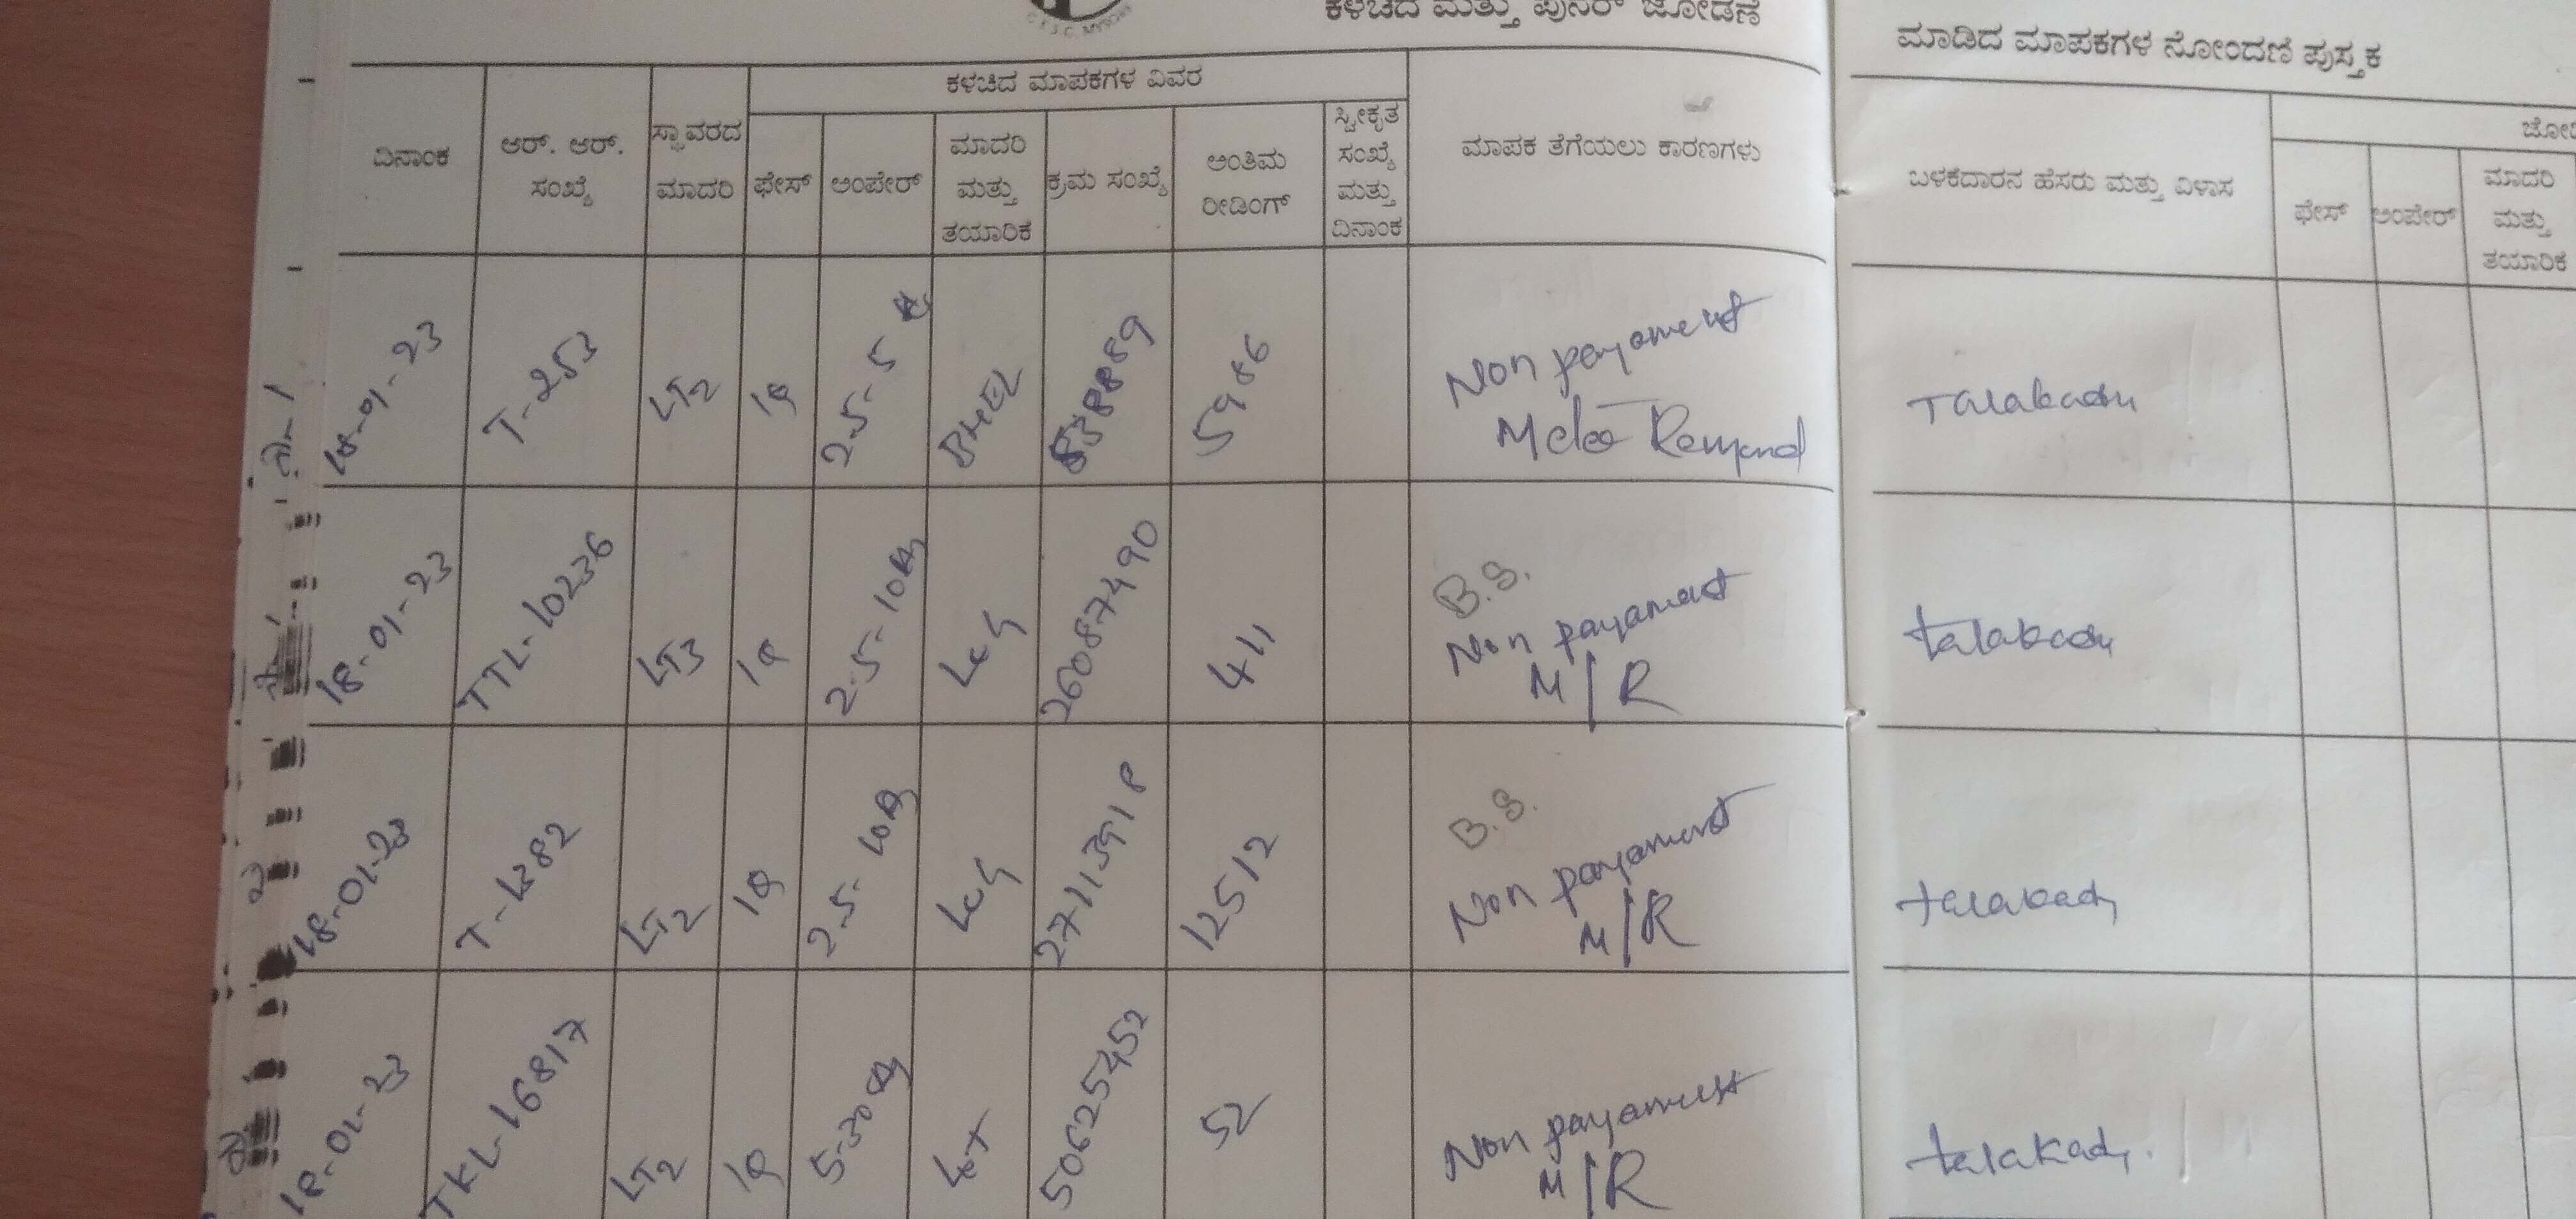 ಕಳಚಿದ ಮತ್ತು ಪುನರ್ ಜೋಡಣೆ
ಮಾಡಿದ ಮಾಪಕಗಳ ನೋಂದಣಿ ಪುಸ್ತಕ
ಕಳಚಿದ ಮಾಪಕಗಳ ವಿವರ
ದಿನಾಂಕ
ಆರ್. ಆರ್.
ಸಂಖ್ಯೆ
ಸ್ಥಾವರದ
ಮಾದರಿ
ಫೇಸ್
ಅಂಪೇರ್
ಮಾದರಿ
ಮತ್ತು
ತಯಾರಿಕ
ಕ್ರಮ ಸಂಖ್ಯೆ
ಅಂತಿಮ
ರೀಡಿಂಗ್
ಸ್ವೀಕೃತ
ಸಂಖ್ಯೆ
ಮತ್ತು
ದಿನಾಂಕ
ಮಾಪಕ ತೆಗೆಯಲು ಕಾರಣಗಳು
ಬಳಕೆದಾರನ ಹೆಸರು ಮತ್ತು ವಿಳಾಸ
ಫೇಸ್
ಅಂಪೇರ್
ಮಾದರಿ
ಮತ್ತು
ತಯಾರಿಕ
18-01-23 T-253 LT2 1φ 2.5-5 BHEL 5986
Non payament
Talakadu
18-01-23 TTL-10236 LT3 1φ 2.5-10A L&G 26087490 411
B.S.
Non payament
M/R
talakadu
18-01-23 T-1382 LT2 1φ 2.5-10A L&G 27113918 12512
B.S.
Non payament
M/R
talakadu
18-01-23 TKL-16817 LT2 1φ 5-30A L&T 50625452 52
Non payament
M/R
talakadu.